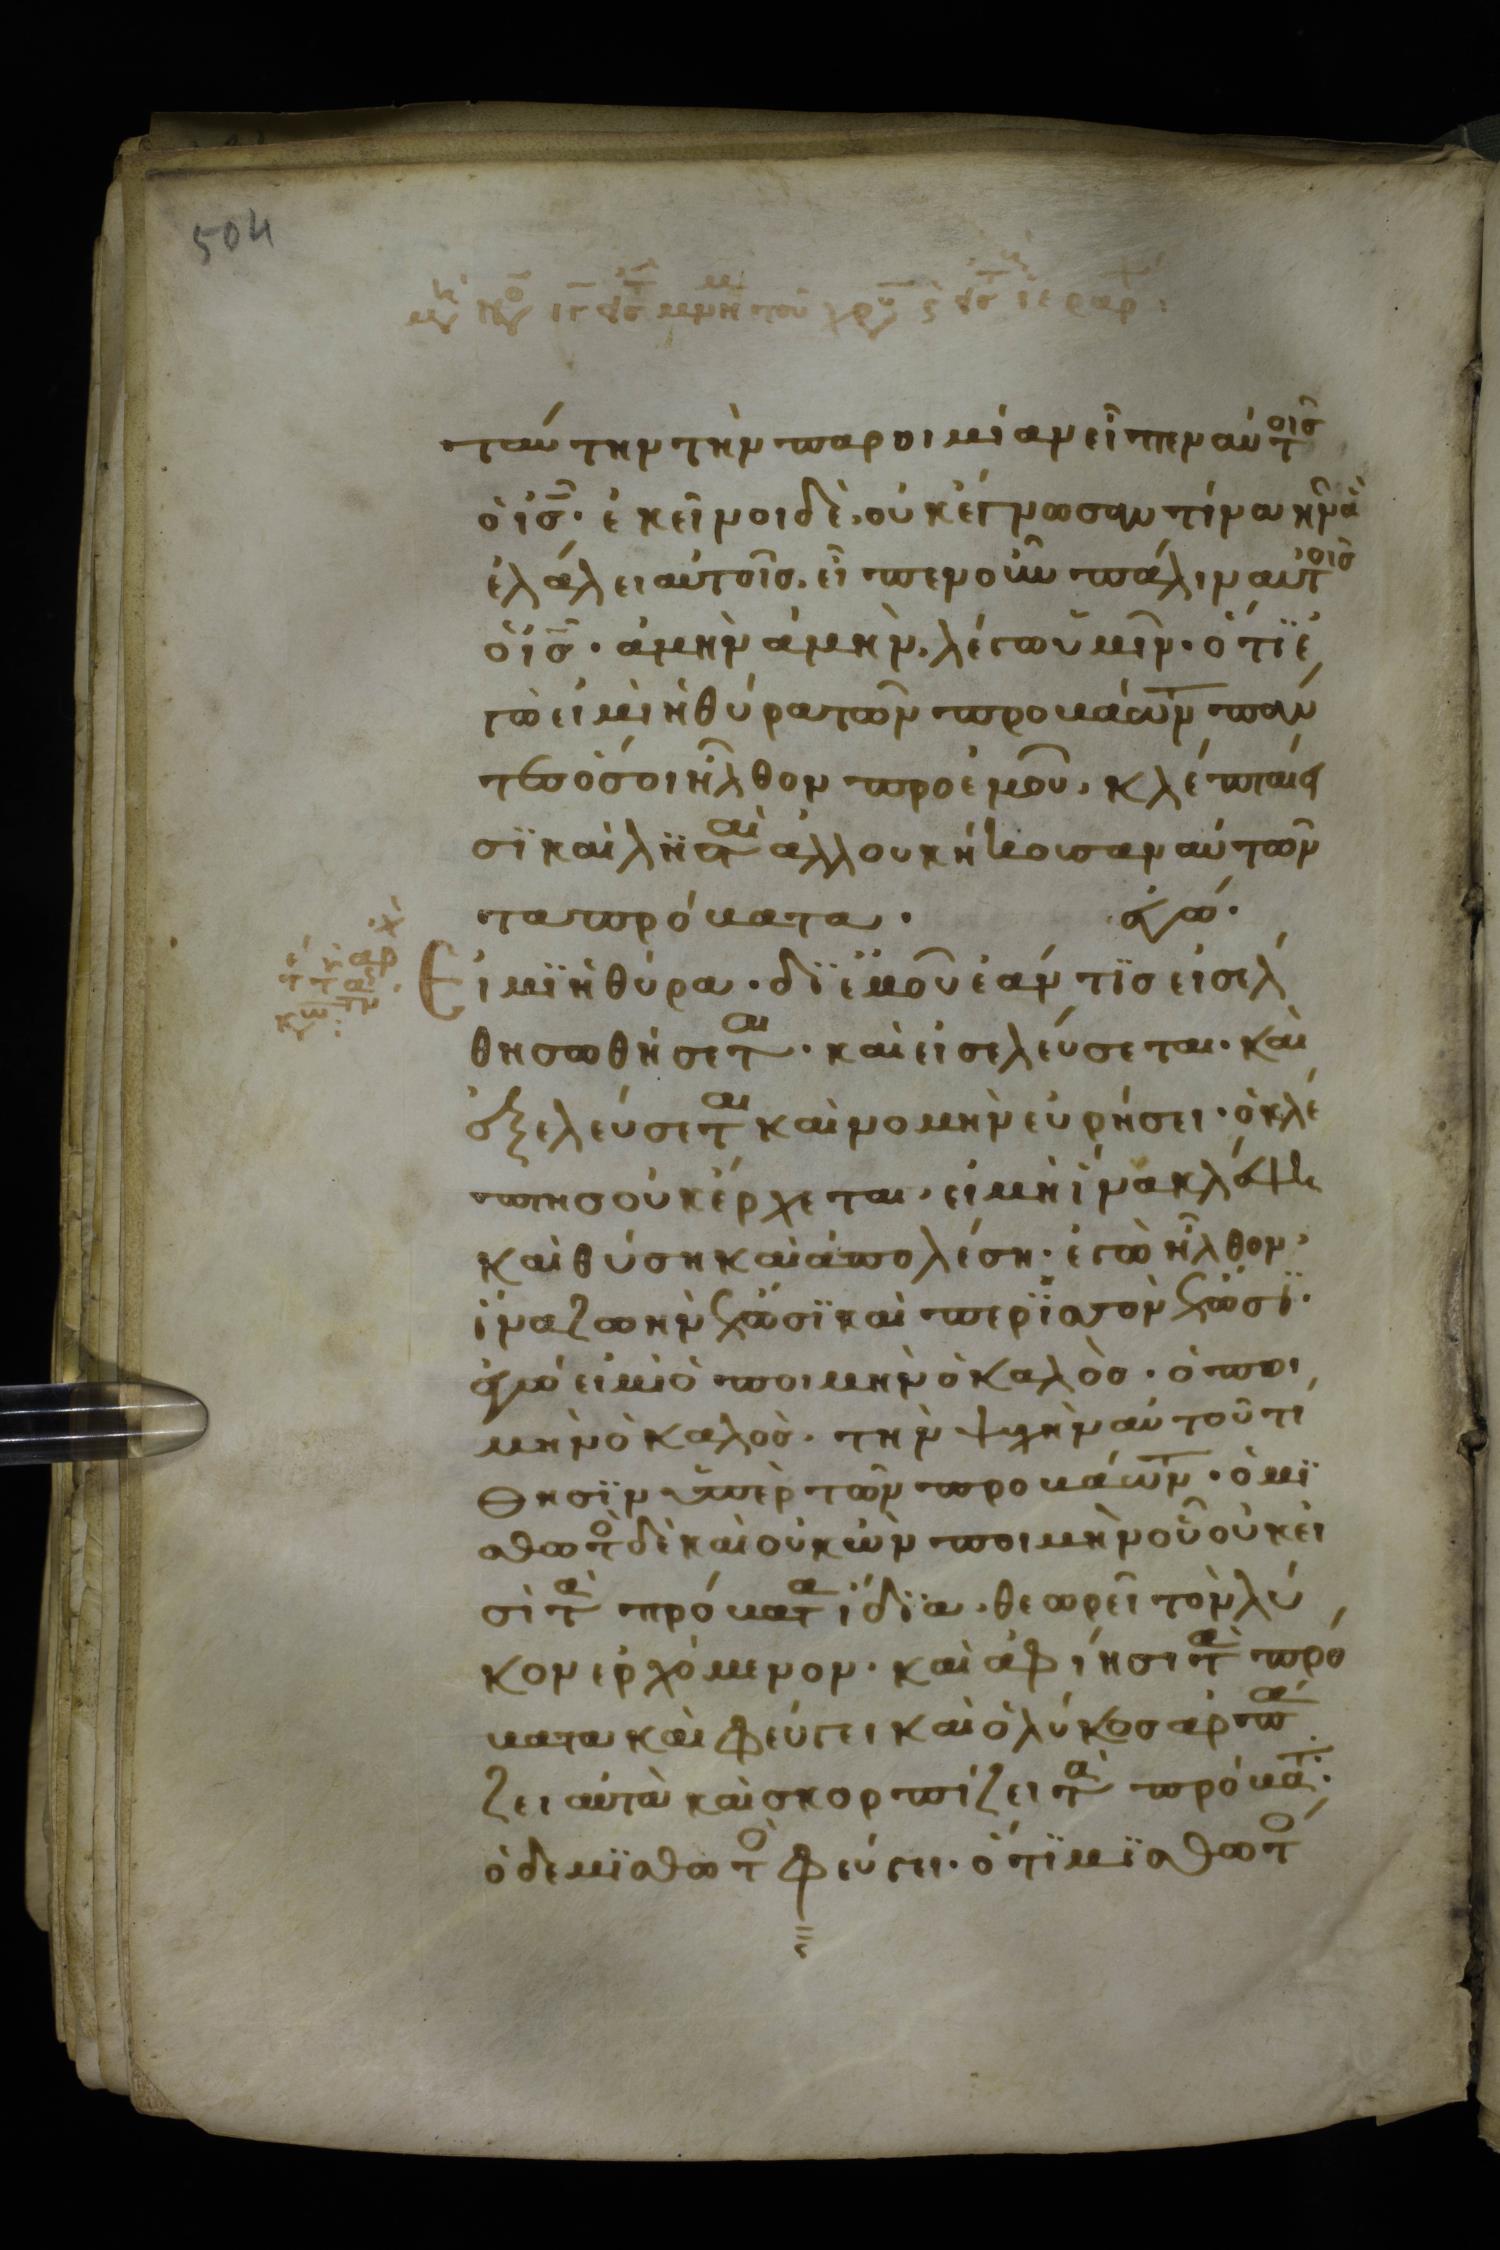 504
ταύτην τὴν παροιμίαν εἶπεν αὐτοῖς
ὁ ἰς· ἐκεῖνοι δὲ, οὐκ ἔγνωσαν τίνα ἦν ἃ
ἐλάλει αὐτοῖς. εἶπεν οὖν πάλιν αὐτοῖς
ὁ ἰς· ἀμὴν ἀμὴν, λέγω ὑμῖν· ὅτι ἐ
γώ εἰμι ἡ θύρα τῶν προβάτων· πάν
τες ὅσοι ἦλθον προ ἐμοῦ, κλέπται εἰ
σὶ καὶ λησταὶ ἀλλ ουκ ἤκουσαν αὐτῶν
τα πρόβατα· ἐγώ·
Εἰμι ἡ θύρα· δι ἐμοῦ ἐάν τις εἰσέλ
θη σωθήσεται· καὶ εἰσελεύσεται· καὶ
ἐξελεύσεται καὶ νομὴν εὑρήσει· ὁ κλέ
πτης οὐκ ἔρχεται, εἰ μὴ ἵνα κλέψη
καὶ θύση καὶ ἀπολέση· ἐγὼ ἦλθον
ἵνα ζωὴν ἔχωσι καὶ περισσὸν ἔχωσι·
ἐγώ εἰμι ὁ ποιμὴν ὁ καλὸς· ὁ ποι
μὴν ὁ καλὸς· τὴν ψυχὴν αὐτοῦ τί
θησιν ὑπὲρ τῶν προβάτων· ὁ μι
σθωτὸς δὲ καὶ οὐκ ὢν ποιμὴν οὗ οὐκ εἰ
σὶ τὰ πρόβατα ἴδια· θεωρεῖ τὸν λύ
κον ἐρχόμενον· καὶ ἀφίησι τὰ πρό
βατα καὶ φεύγει καὶ ὁ λύκος ἁρπά
ζει αὐτὰ καὶ σκορπίζει τὰ πρόβατα·
ὁ δε μισθωτὸς φεύγει· ὅτι μισθωτός